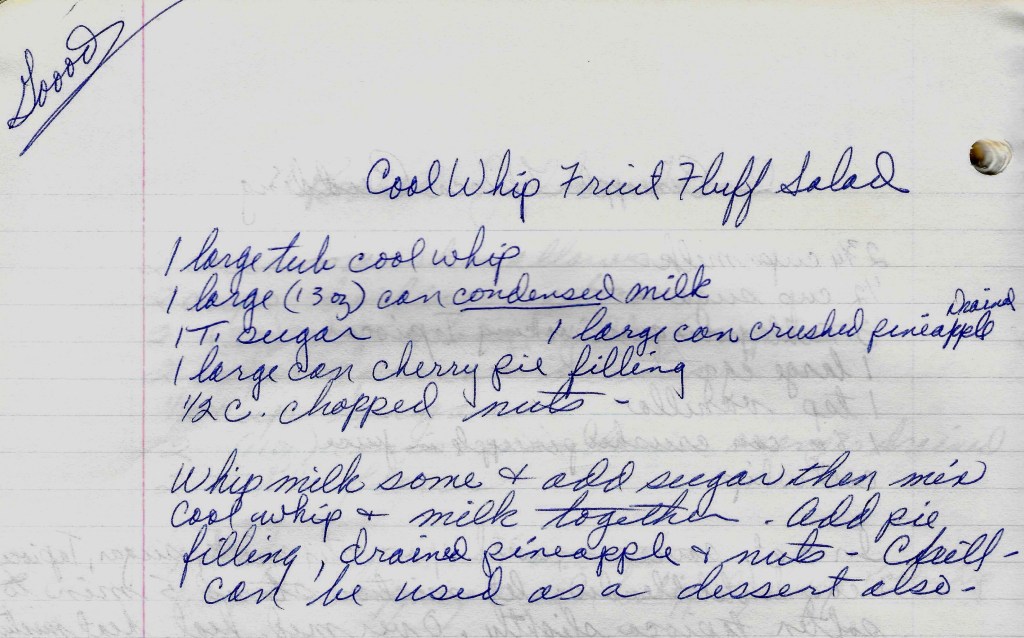 Goood
Cool Whip Fruit Fluff Salad
1 large tub cool whip
1 large (13 oz) can condensed milk
Drained
1 T. sugar 1 large can crushed pineapple
1 large can cherry pie filling
1/2 c. chopped nuts -
Whip milk some & add sugar then mix
cool whip & milk together. Add pie
filling, drained pineapple & nuts - Chill -
can be used as a dessert also -